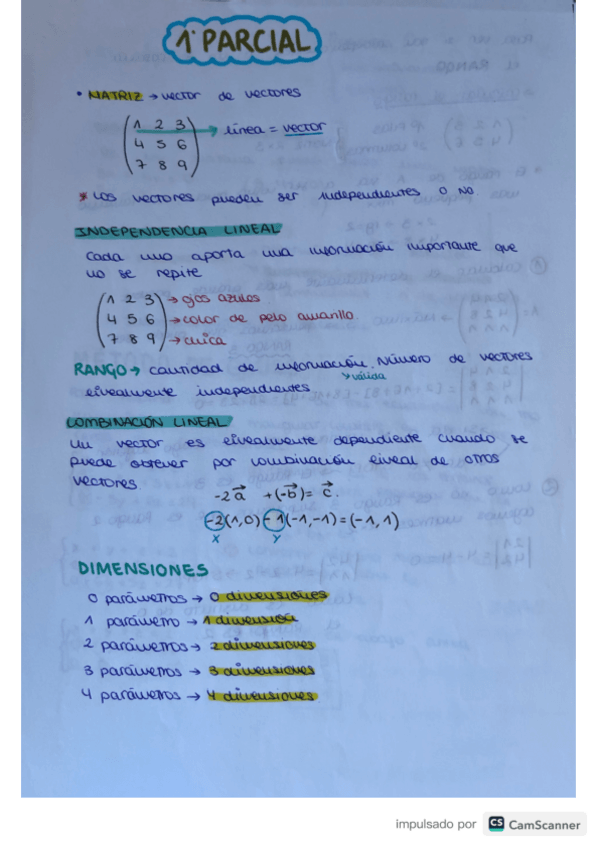 1º PARCIAL
• MATRIZ → vector de vectores
1 2 3 → línea = vector
4 5 6
7 8 9
* Los vectores pueden ser independientes o no.
INDEPENDENCIA LINEAL
Cada uno aporta una información importante que
no se repite
1 2 3 → ojos azules
4 5 6 → color de pelo amarillo
7 8 9 → chica
RANGO → cantidad de información. Número de vectores
↳ válida
linealmente independientes
COMBINACIÓN LINEAL
Un vector es linealmente dependiente cuando se
puede obtener por combinación lineal de otros
vectores
-2a⃗ +(-b⃗) = c⃗.
-2(1,0) -1(-1,-1) = (-1, 1)
x y
DIMENSIONES
0 parámetros → 0 dimensiones
1 parámetro → 1 dimensión
2 parámetros → 2 dimensiones
3 parámetros → 3 dimensiones
4 parámetros → 4 dimensiones
impulsado por CS CamScanner